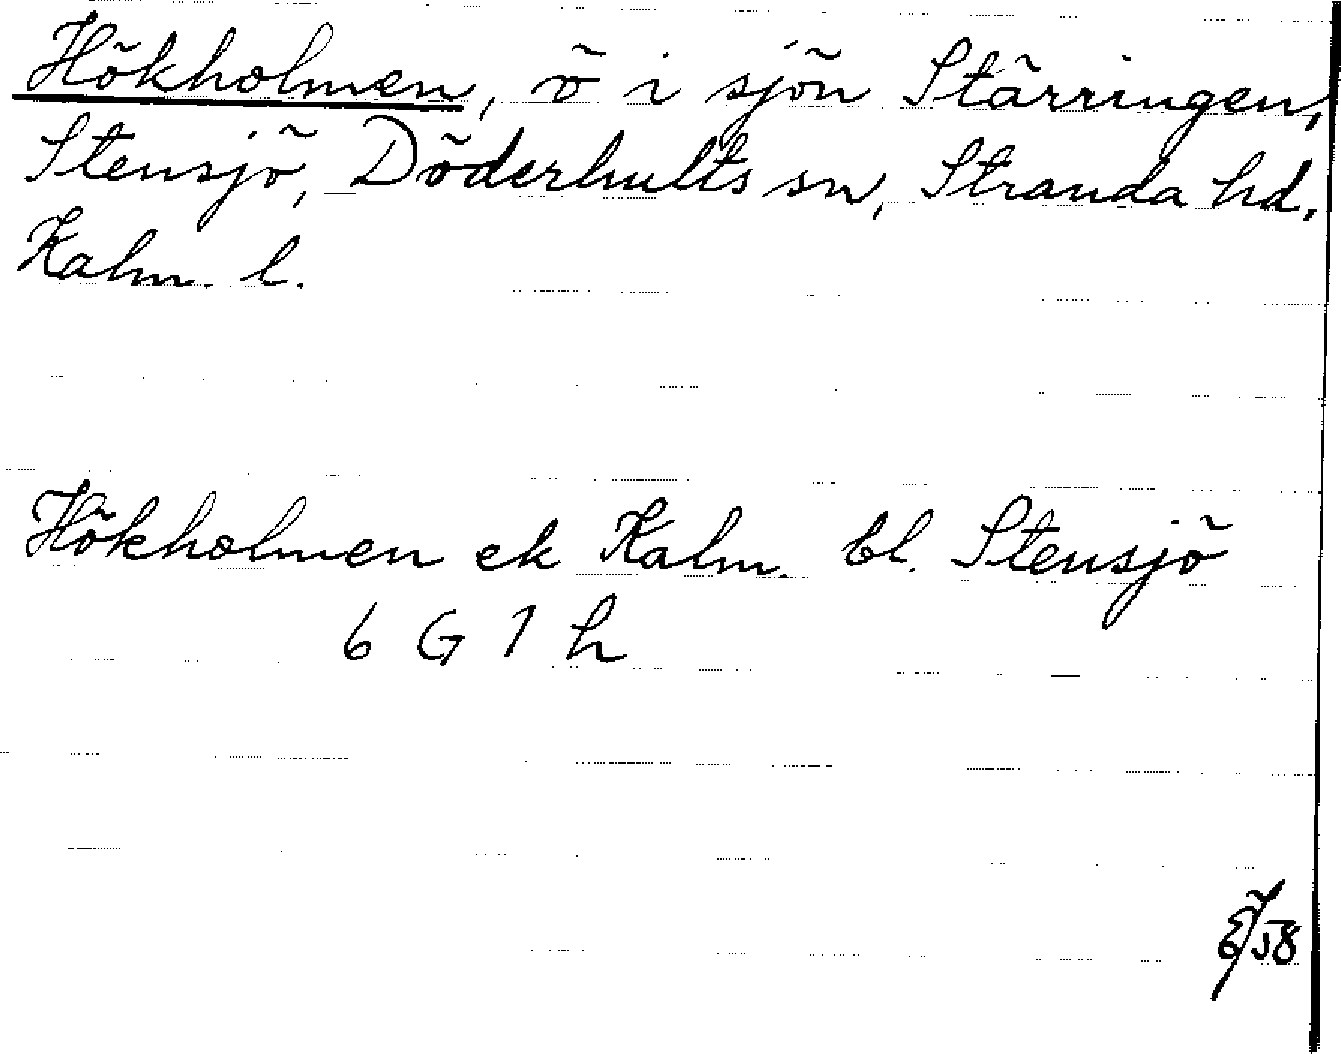 Hökholmen, ö i sjön Stärringen,
Stensjö, Döderhults sn, Stranda hd,
Kalm. l.
Hökholmen ek Kalm. bl. Stensjö
6 G 1 h